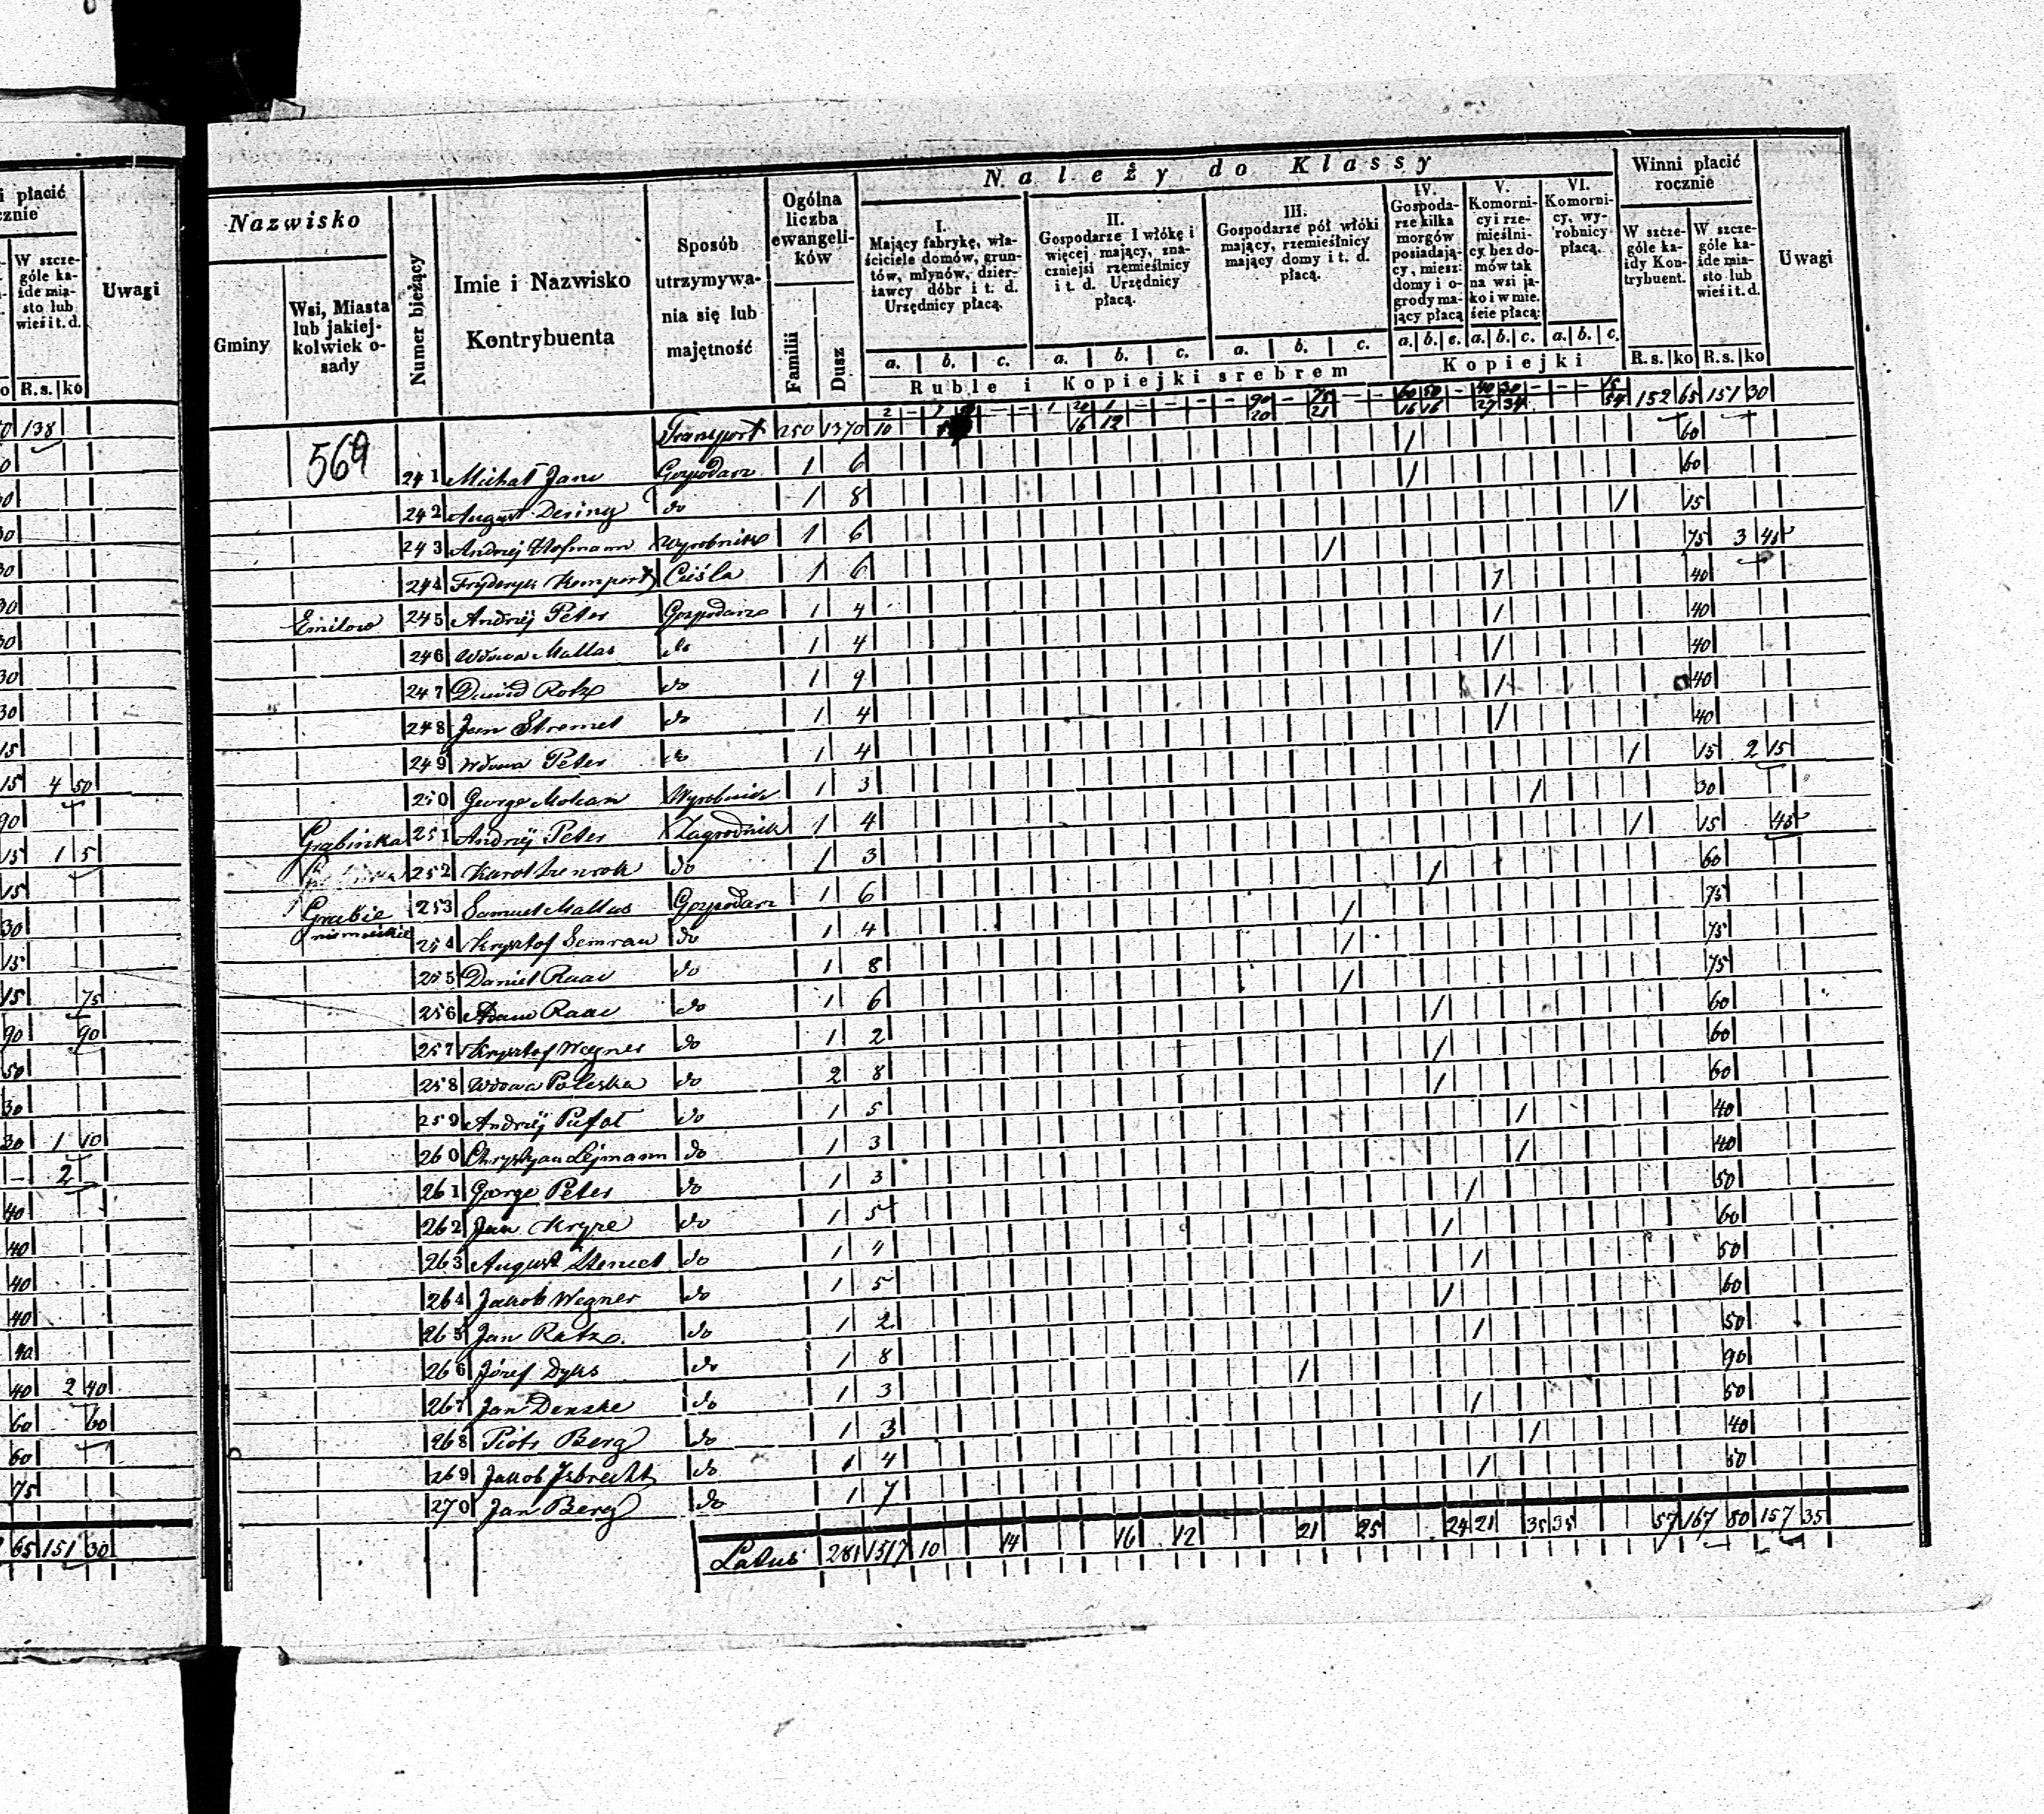 i płacić
cznie
W szcze-
góle ka-
żde mia-
sto lub
wieś i t. d.
Uwagi
R.s. ko
138
4 50
1 5
75
90
1 10
2
2 40
60
65 151 30
Należy do Klassy
Nazwisko
Gminy
Wsi, Miasta
lub jakiej-
kolwiek o-
sady
Numer bieżący
Imie i Nazwisko
Kontrybuenta
Sposób
utrzymywa-
nia się lub
majętność
Ogólna
liczba
ewangeli-
ków
Familii
Dusz
I.
Mający fabrykę, wła-
ściciele domów, grun-
tów, młynów, dzier-
żawcy dóbr i t. d.
Urzędnicy płacą.
II.
Gospodarze 1 włókę i
więcej mający, zna-
czniejsi rzemieślnicy
i t. d. Urzędnicy
płacą.
III.
Gospodarze pół włóki
mający, rzemieślnicy
mający domy i t. d.
płacą.
IV.
Gospoda-
rze kilka
morgów
posiadają-
cy, miesz:
domy i o-
grody ma-
jący płacą
V.
Komorni-
cy i rze-
mieślni-
cy bez do-
mów tak
na wsi ja-
ko i w mie-
ście płacą:
VI.
Komorni-
cy, wy-
robnicy
płacą.
Winni płacić
rocznie
W szcze-
góle ka-
żdy Kon-
trybuent.
W szcze-
góle ka-
żde mia-
sto lub
wieś i t. d.
Uwagi
a. b. c. a. b. c. a. b. c. a. b. c. a. b. c. a. b. c.
Ruble i Kopiejki srebrem
Kopiejki
R.s. ko R.s. ko
Transport 250 1370 10 16 12 20 21 16 16 27 34 54 152 65 151 30
569
241 Michał Jane Gospodarz 1 6 / 60
242 August Desing do 1 8 / 60
243 Andrzej Hofmann Wyrobnik 1 6 / 15
244 Fryderyk Kempert Cieśla 1 6 / 75 3 45
Emilow 245 Andrzéj Peter Gospodarz 1 4 / 40
246 Wdowa Mallas do 1 4 / 40
247 Dawid Rotz do 1 9 / 40
248 Jan Stremel do 1 4 / 40
249 Wdowa Peter do 1 4 / 40
250 George Mohan Wyrobnik 1 3 / 15 2 15
Grabinka 251 Andrzéj Peter Zagrodnik 1 4 / 30
252 Karol do 1 3 / 15 45
Grabie niemieckie 253 Samuel Mallas Gospodarz 1 6 / 60
254 Krysztof Semrau do 1 4 / 75
255 Daniel Raae do 1 8 / 75
256 Adam Raae do 1 6 / 75
257 Krysztof Wegner do 1 2 / 60
258 Wdowa Poleska do 2 8 / 60
259 Andrzéj Pufal do 1 5 / 60
260 Chrystyan Lejmann do 1 3 / 40
261 George Peter do 1 3 / 40
262 Jan Krype do 1 5 / 50
263 August do 1 4 / 60
264 Jakob Wegner do 1 5 / 50
265 Jan Ratz do 1 2 / 60
266 Józef Dyks do 1 8 / 50
267 Jan Denske do 1 3 / 90
268 Piotr Berg do 1 3 / 50
269 Jakob Isbrecht do 1 4 / 40
270 Jan Berg do 1 7 / 50
Latus 281 1517 10 14 16 12 21 25 24 21 35 35 57 167 80 157 35